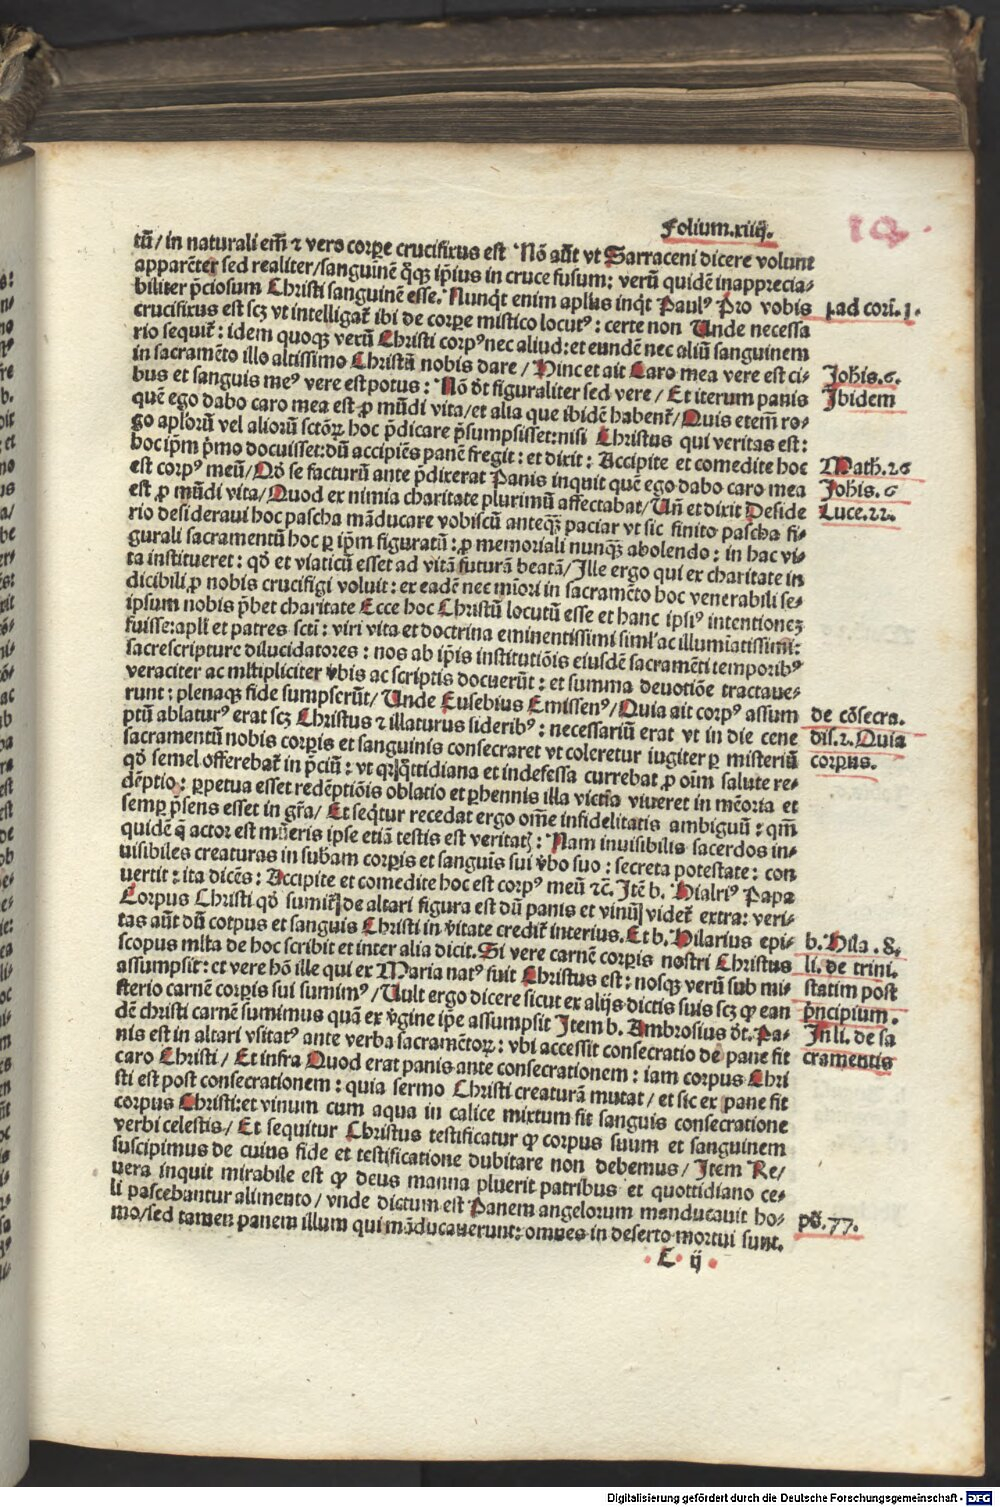 Folium.xiiij.
tū/ in naturali em̄ ⁊ vero corpe crucifixus est Nō aūt vt Sarraceni dicere volunt
apparēter sed realiter/sanguinē q̄q; ip̄ius in cruce fusum: verū quidē inapprecia-
biliter p̄ciosum Christi sanguinē esse. Nunq̇t enim apl̄us inq̇t Paulꝰ Pro vobis
pad cori. 1.
crucifixus est scꝫ vt intelligat̄ ibi de corpe mistico locutꝰ: certe non Unde necessa
rio sequit̄: idem quoqꝫ verū Christi corpꝰ nec aliud: et eundē nec aliū sanguinem
in sacramēto illo altissimo Christū nobis dare/ Hinc et ait Caro mea vere est ci-
Johis.6.
bus et sanguis meꝰ vere est potus: Nō d̄t figuraliter sed vere/ Et iterum panis
Ibidem
quē ego dabo caro mea est ꝓ mūdi vita/et alia que ibidē habent̄/Quis etem̄ ro-
go apl̄orū vel aliorū sctōꝝ hoc p̄dicare p̄sumpsisset:nisi Christus qui veritas est:
hoc ip̄m p̄mo docuisset: dū accipiēs panē fregit: et dixit: Accipite et comedite hoc
Math.26
est corpꝰ meū/ Qd̄ se facturū ante p̄dixerat Panis inquit quē ego dabo caro mea
Johis. 6
est ꝓ mūdi vita/ Quod ex nimia charitate plurimū affectabat/ Un̄ et dixit Deside
Luce.22.
rio desideraui hoc pascha māducare vobiscū anteqꝫ paciar vt sic finito pascha fi-
gurali sacramentū hoc p ip̄m figuratū: ꝓ memoriali nunqꝫ abolendo: in hac vi-
ta institueret: qd̄ et viaticū esset ad vitā futurā beatā/ Ille ergo qui ex charitate in
dicibili ꝓ nobis crucifigi voluit: ex eadē nec mīori in sacramēto hoc venerabili se-
ipsum nobis p̄bet charitate Ecce hoc Christū locutū esse et hanc ipsiꝰ intentionē
fuisse:apl̄i et patres sctī: viri vita et doctrina eminentissimi siml̄'ac illumīatissimi:
sacrescripture dilucidatores: nos ab ip̄is institutiōis eiusdē sacramēti temporibꝰ
veraciter ac ml̄tipliciter v̄bis ac scriptis docuerūt: et summa deuotiōe tractaue-
runt: plenaqꝫ fide sumpserūt/ Unde Eusebius Emissenꝰ/Quia ait corpꝰ assum
de cōsecra.
ptū ablaturꝰ erat scꝫ Christus ⁊ illaturus sideribꝰ: necessariū erat vt in die cene
dis.2. Quia
sacramentū nobis corpis et sanguinis consecraret vt coleretur iugiter p misteriū
corpus.
qd̄ semel offerebat̄ in p̄ciū: vt qr q̇ttidiana et indefessa currebat ꝓ oīm salute re-
dēptio: perpetua esset redēptiōis oblatio et phennis illa victīa viueret in mēoria et
semp p̄sens esset in gr̄a/ Et seq̇tur recedat ergo ōme infidelitatis ambiguū: qm̄
quidē q̄ actor est mūeris ipse etiā testis est veritatꝭ: Nam inuisibilis sacerdos in-
uisibiles creaturas in subam̄ corpis et sanguīs sui v̄bo suo: secreta potestate: con
uertit: ita dicēs: Accipite et comedite hoc est corpꝰ meū ⁊c̄. Itē b. Hialriꝰ Papa
Corpus Christi qd̄ sumit̄ de altari figura est dū panis et vinū videt̄ extra: veri-
tas aūt dū corpus et sanguis Christi in v̄itate credit̄ interius. Et b. Hilarius epi-
b. Hila .8.
scopus ml̄ta de hoc scribit et inter alia dicit. Si vere carnē corpis nostri Christus
li. de trini.
assumpsit: et vere hō ille qui ex Maria natꝰ fuit Christus est: nosqꝫ verū sub mi-
statim post
sterio carnē corpis sui sumimꝰ/ Uult ergo dicere sicut ex alijs dictis suis scꝫ ꝙ ean
p̄ncipium.
dē christi carnē sumimus quā ex v̄gine ipe assumpsit Item b. Ambrosius d̄t. Pa-
In li. de sa
nis est in altari vsitatꝰ ante verba sacramētoꝝ: vbi accessit consecratio de pane fit
cramentis
caro Christi/ Et infra Quod erat panis ante consecrationem: iam corpus Chri
sti est post consecrationem: quia sermo Christi creaturā mutat/ et sic ex pane fit
corpus Christi:et vinum cum aqua in calice mixtum fit sanguis consecratione
verbi celestis/ Et sequitur Christus testificatur ꝙ corpus suum et sanguinem
suscipimus de cuius fide et testificatione dubitare non debemus/ Item Re/
uera inquit mirabile est ꝙ deus manna pluerit patribus et quottidiano ce-
li pascebantur alimento/ vnde dictum est Panem angelorum manducauit ho-
ps̄. 77.
mo/sed tamen panem illum qui māducauerunt: omnes in deserto mortui sunt.
C ij
Digitalisierung gefördert durch die Deutsche Forschungsgemeinschaft - DFG